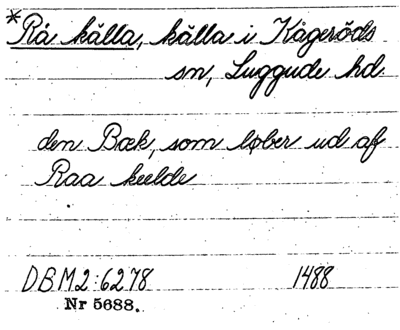 *Rå källa, källa i Kågeröds
sn, Luggude hd.
den Bæk, som løber ud af
Raa keelde
DBM2:6278 1488
Nr 5688.